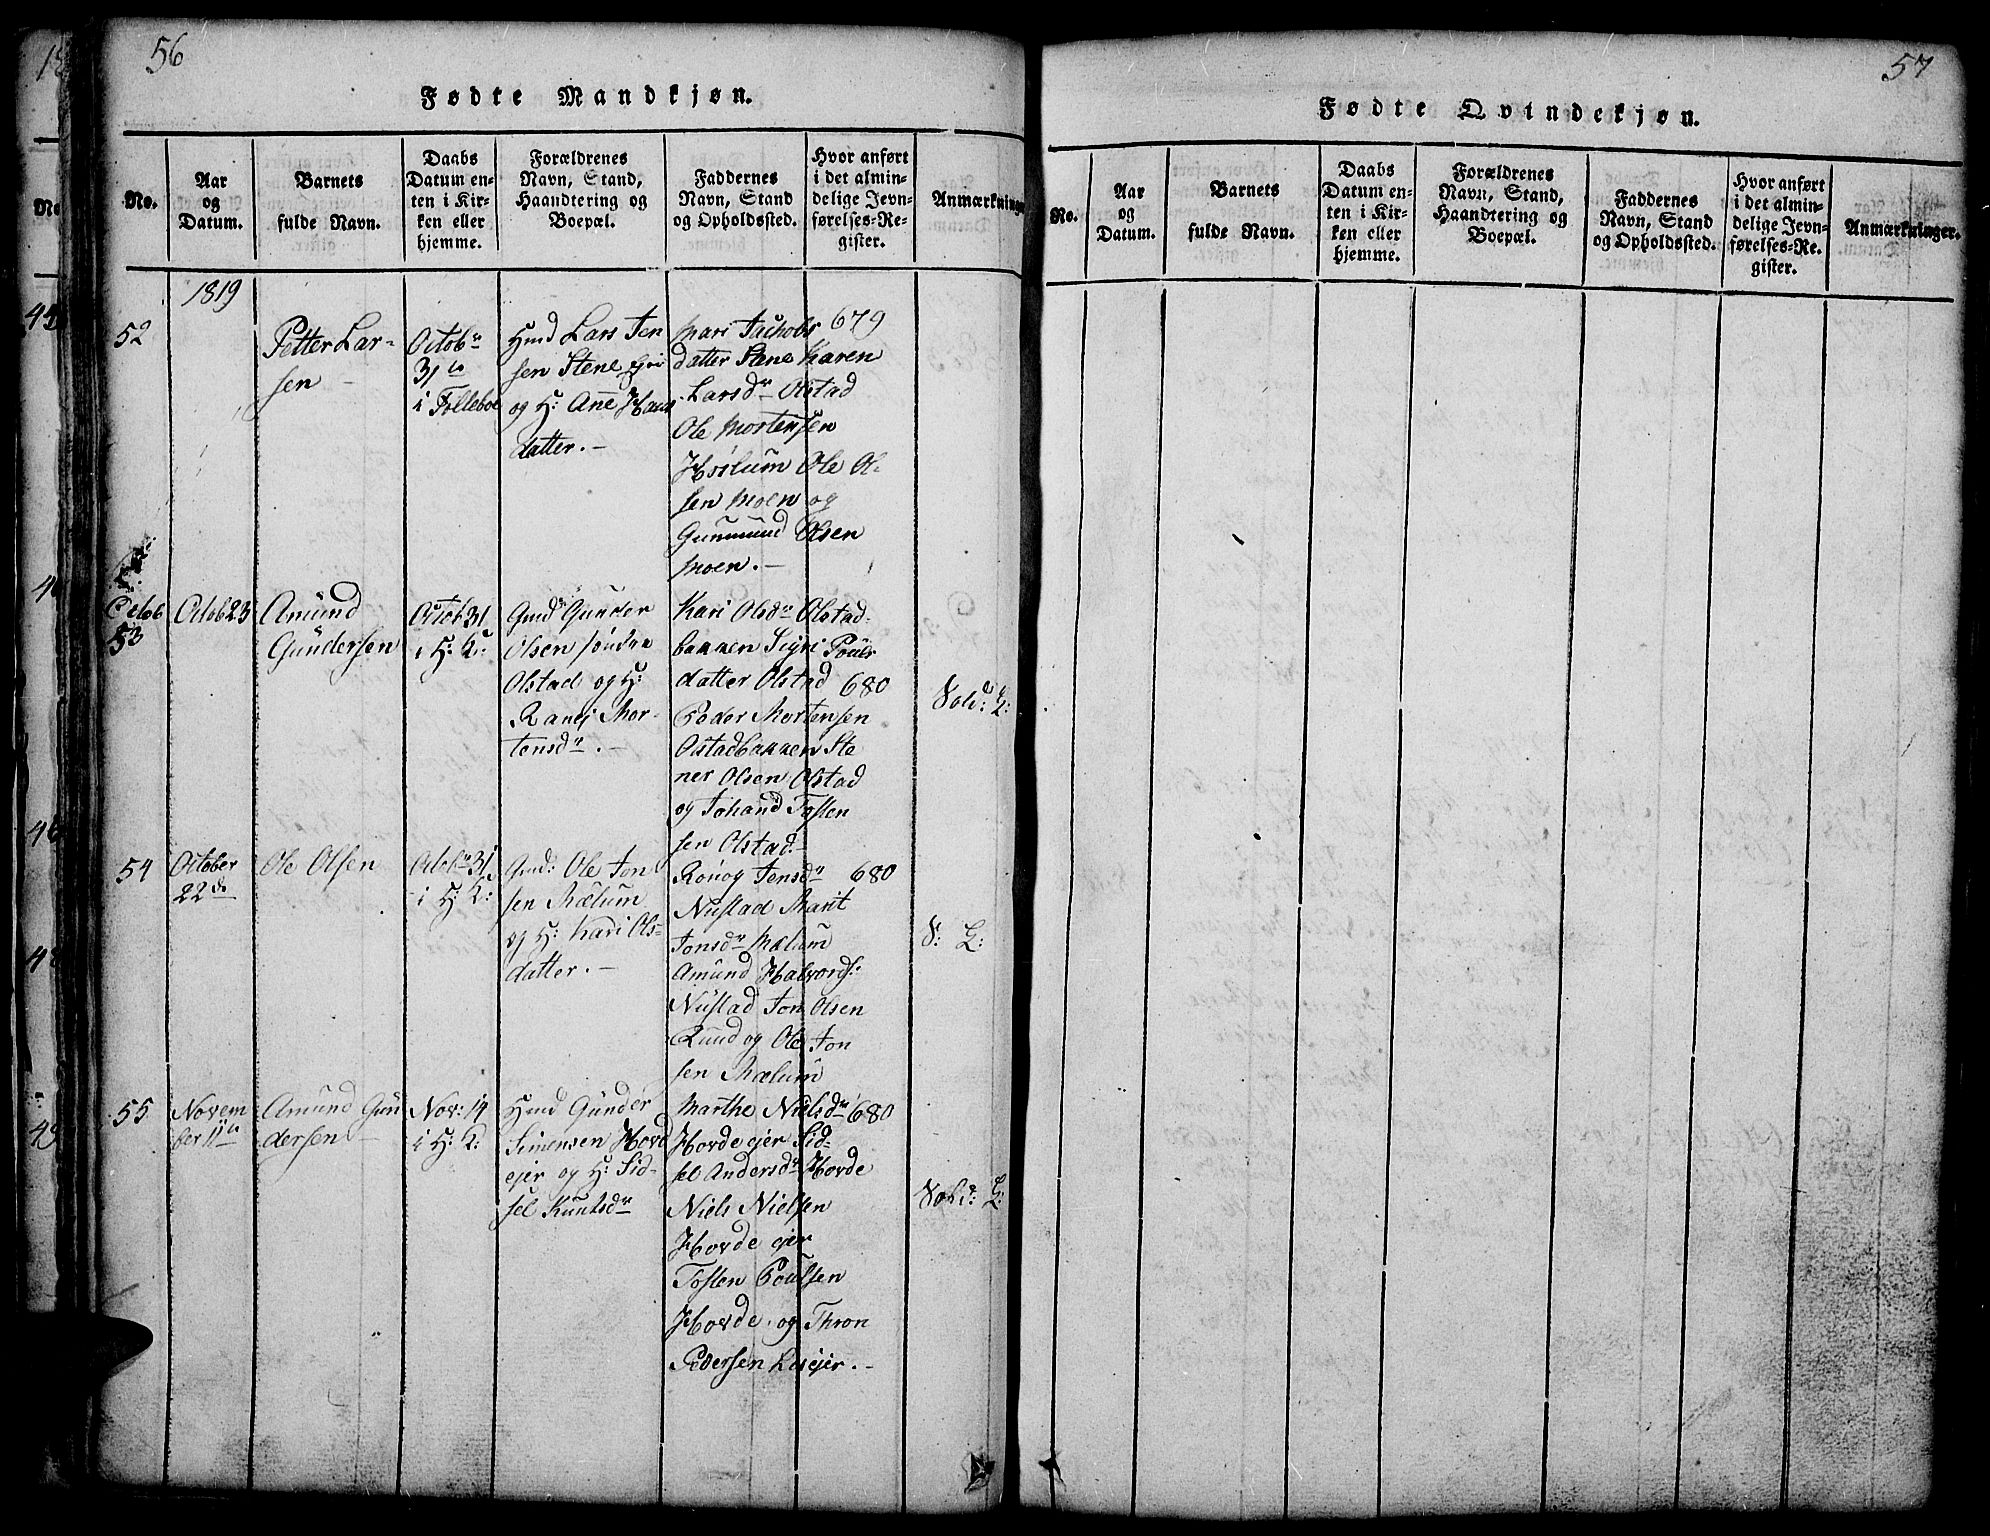 56
Fødte Mandkjøn.
No.
Aar
og
Datum.
Barnets
fulde Navn.
Daabs
Datum en-
ten i Kir-
ken eller
hjemme.
Forældrenes
Navn, Stand,
Haandtering og
Boepæl.
Faddernes
Navn, Stand
og Opholdssted.
Hvor anført
i det almin-
delige Jevn-
førelses-Re-
gister.
Anmærkninger
1819
52
Petter Lar-
sen
Octobr
31te
i Folleboe
Hmd Lars Jen
sen Stene ejer
og H: Anne Hans
datter.
Mari Jachobs
datter Stene Karen
Larsdr Olstad
Ole Mortensen
Høslum Ole Ol-
sen Moen og
Gunmund Olsen
Moen.
679
Octob
53
Octob 23
Amund
Gundersen
Octob 31
i H: K:
Gmd Gunder
Olsen søndre
Olstad og H:
Rangi Mor-
tensdr.
Kari Olsdr Olstad-
bakken Sigri Pouls
datter Olstad
Peder Mortensen
Olstadbakken Ste
ner Olsen Olstad
og Johand Tosten
sen Olstad.
680
54
October
22de
Ole Olsen
Octobr 31
i H: K:
Gmd: Ole Jon
sen Mælum
og H: Kari Ols-
datter.
Ronog Jensdr
Nustad Marit
Jonsdr Mælum
Amund Halvords:
Nustad Jon Olsen
Rund og Ole Jon
sen Mælum
680
55
Novem
ber 11te
Amund Gun
dersen
Nov: 14
i H: K:
Hmd Gunder
Simensen Hovd
ejer og H: Sid-
sel Knutsdr
Marthe Nielsdr
Hovde ejer Sid-
sel Andersdr Hovde
Niels Nielsen
Hovde ejer
Tosten Poulsen
Hovde og Thron
Pedersen
680
57
Fødte Qvindekjøn.
No.
Aar
og
Datum.
Barnets
fulde Navn.
Daabs
Datum en-
ten i Kir-
ken eller
hjemme.
Forældrenes
Navn, Stand,
Haandtering og
Boepæl.
Faddernes
Navn, Stand
og Opholdssted.
Hvor anført
i det almin-
delige Jevn-
førelses-Re-
gister.
Anmærkninger.